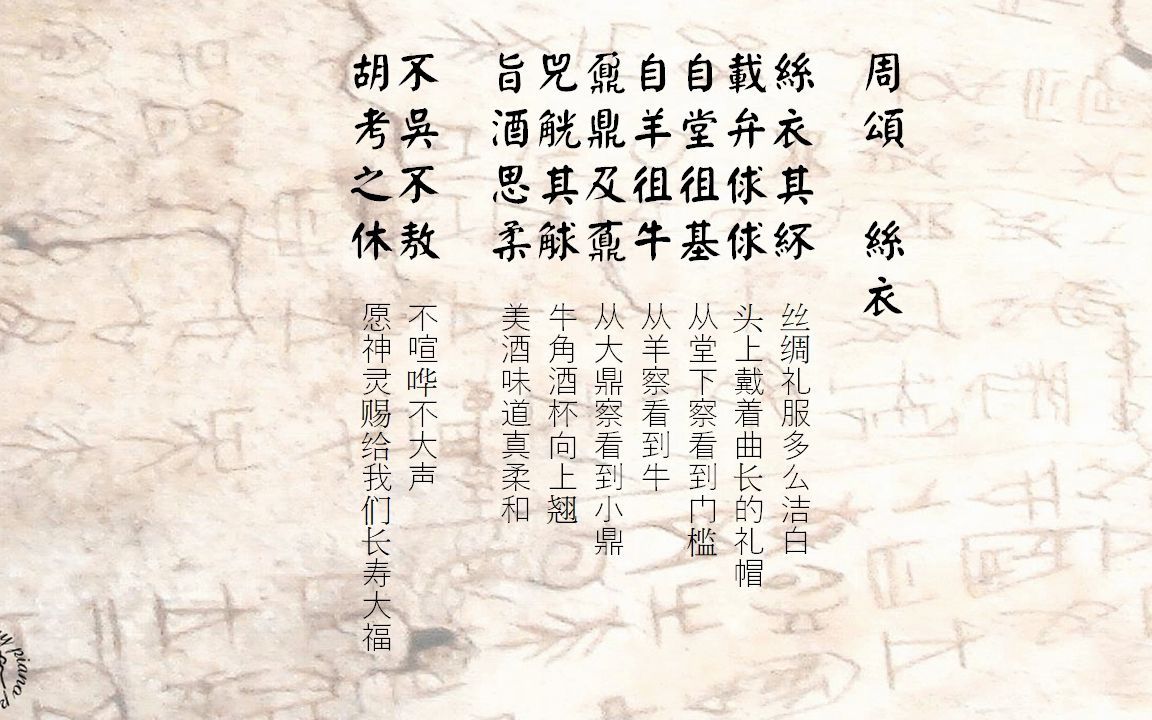 周頌 絲衣
絲衣其紑
載弁俅俅
自堂徂基
自羊徂牛
鼐鼎及鼒
兕觥其觩
旨酒思柔
不吳不敖
胡考之休
丝绸礼服多么洁白
头上戴着曲长的礼帽
从堂下察看到门槛
从羊察看到牛
从大鼎察看到小鼎
牛角酒杯向上翘
美酒味道真柔和
不喧哗不大声
愿神灵赐给我们长寿大福
piano